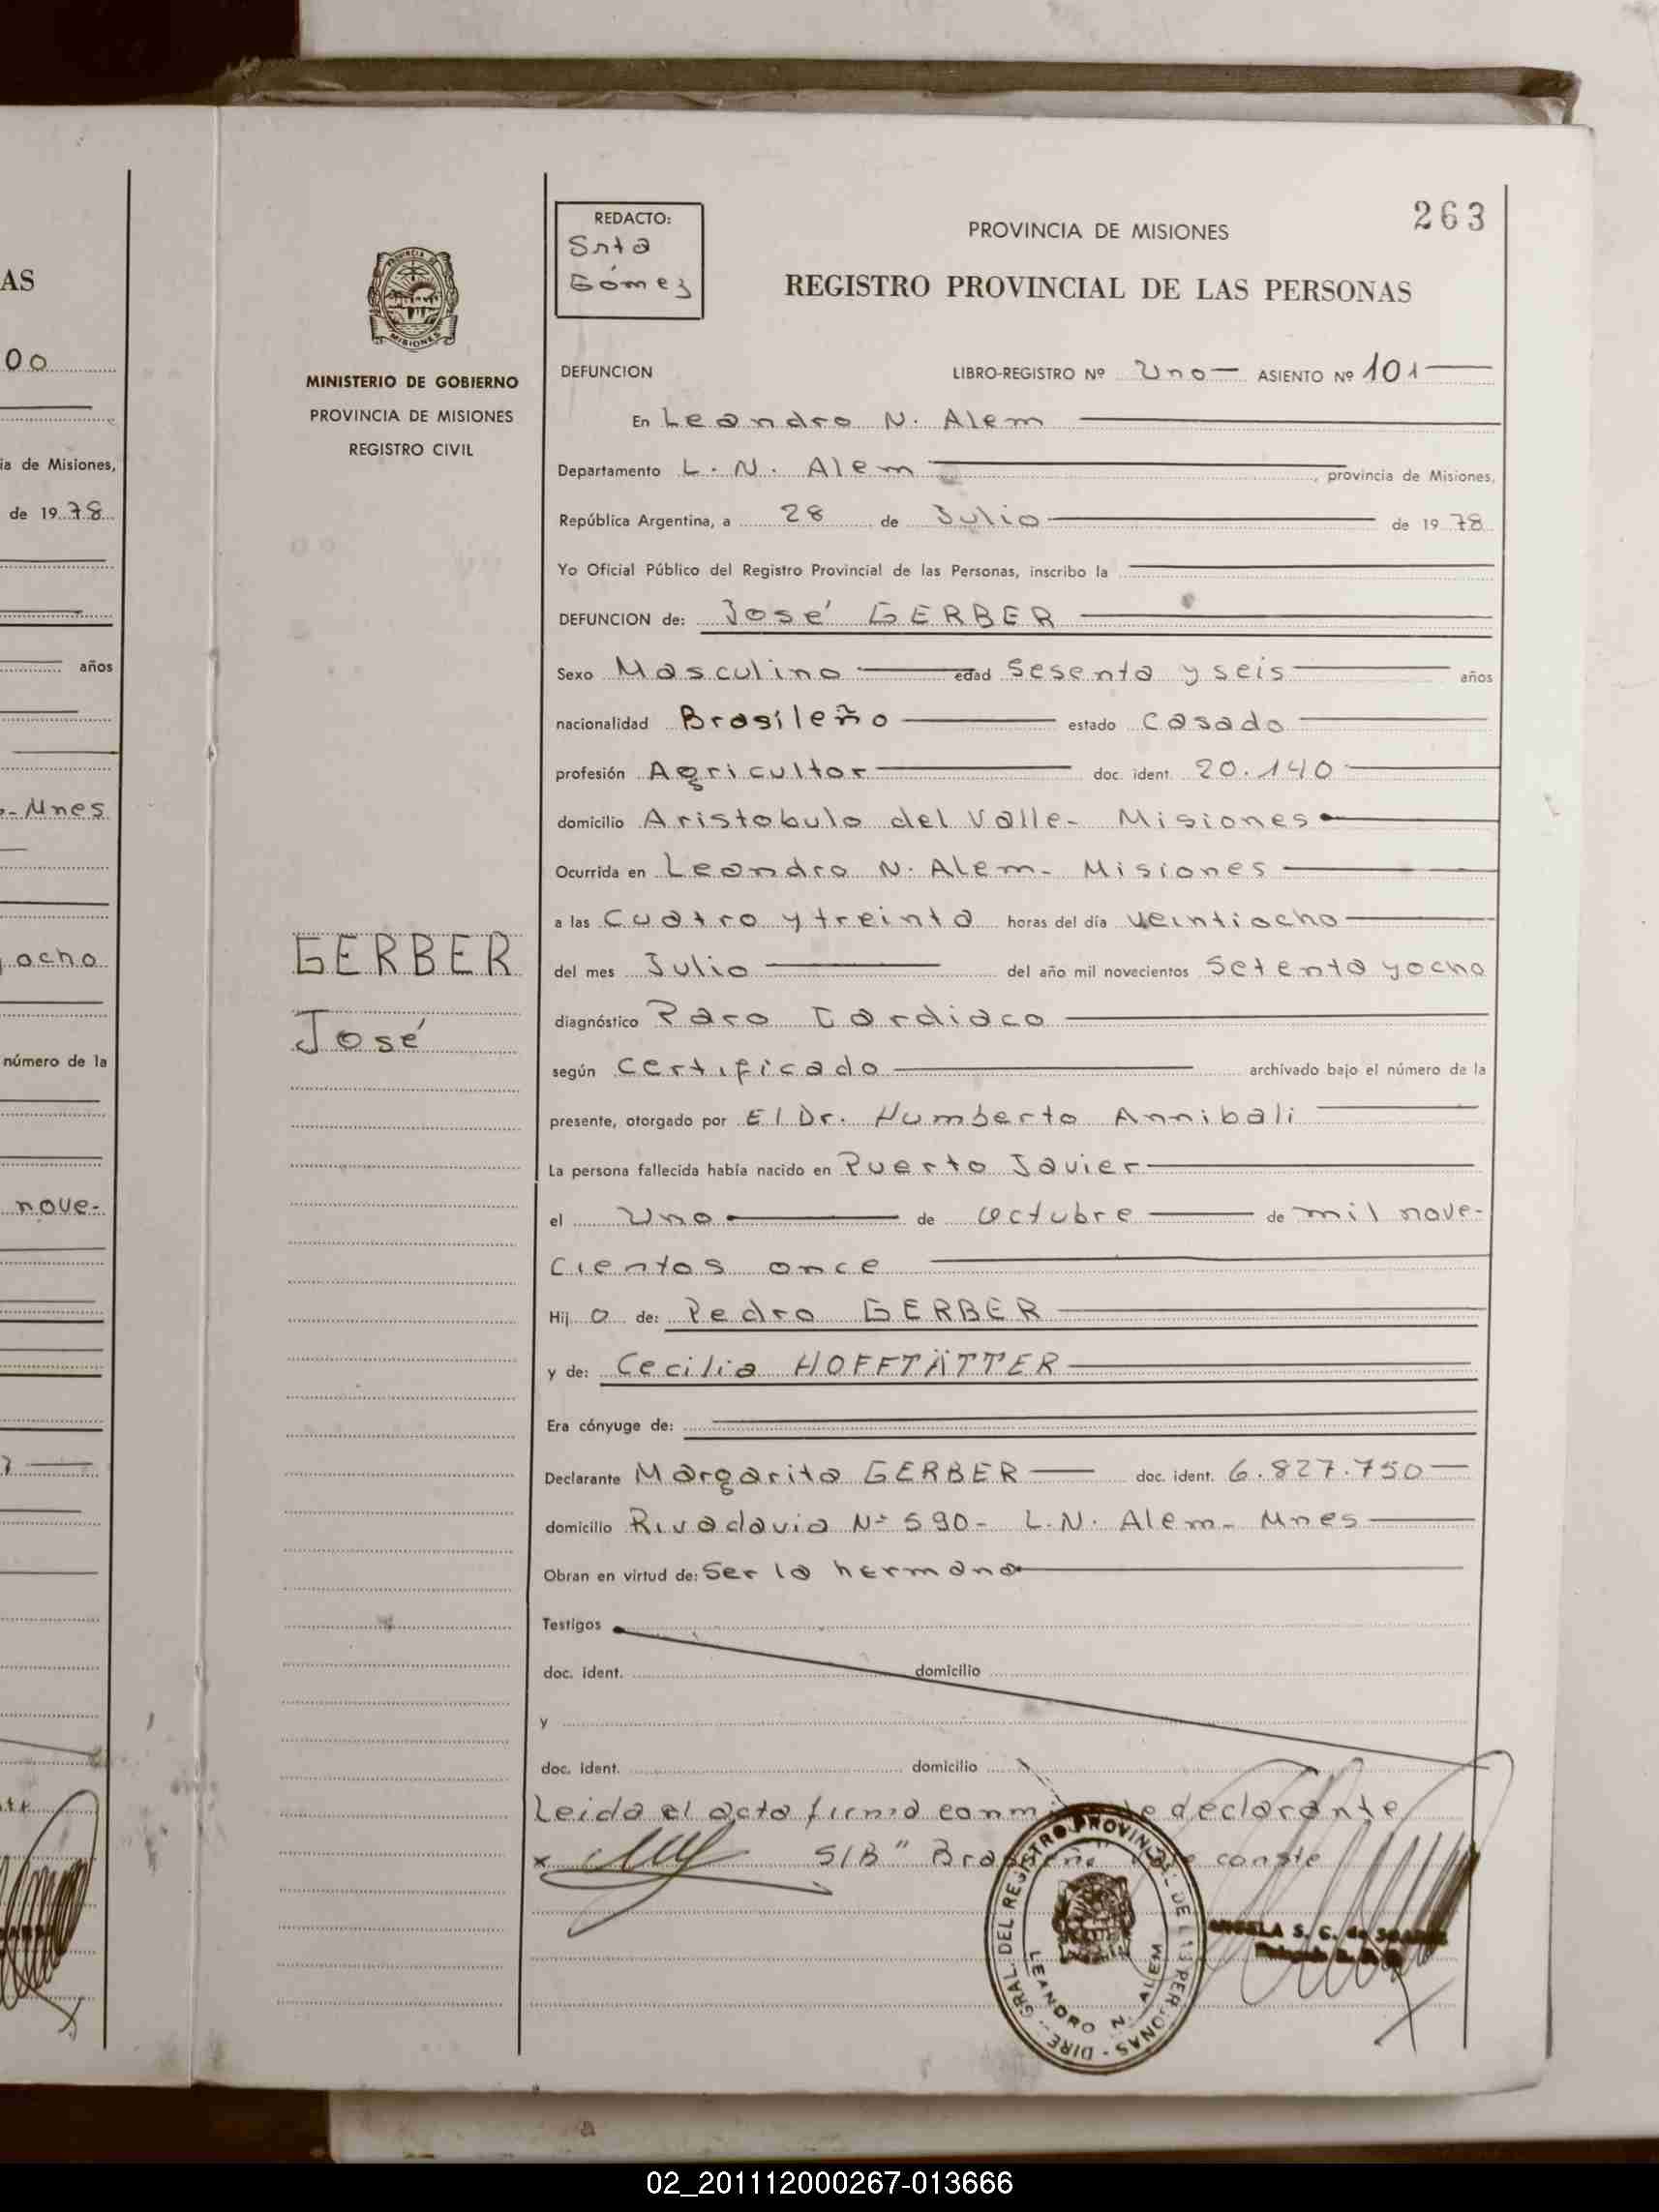 AS
00
ia de Misiones,
de 19 78
años
o- Mnes
y ocho
número de la
nove-
PROVINCIA DE MISIONES
MINISTERIO DE GOBIERNO
PROVINCIA DE MISIONES
REGISTRO CIVIL
GERBER
José
REDACTO:
Srta
Gómez
PROVINCIA DE MISIONES
263
REGISTRO PROVINCIAL DE LAS PERSONAS
DEFUNCION LIBRO-REGISTRO Nº Uno ASIENTO Nº 101
En Leandro N. Alem
Departamento L. N. Alem, provincia de Misiones,
República Argentina, a 28 de Julio de 19 78
Yo Oficial Público del Registro Provincial de las Personas, inscribo la
DEFUNCION de: José GERBER
Sexo Masculino edad Sesenta y seis años
nacionalidad Brasileño estado Casado
profesión Agricultor doc. ident. 20.140
domicilio Aristobulo del Valle- Misiones
Ocurrida en Leandro N. Alem- Misiones
a las Cuatro y treinta horas del día veintiocho
del mes Julio del año mil novecientos Setenta y ocho
diagnóstico Paro Cardiaco
según Certificado archivado bajo el número de la
presente, otorgado por El Dr. Humberto Annibali
La persona fallecida había nacido en Puerto Javier
el Uno de octubre de mil nove-
cientos once
Hij o de: Pedro GERBER
y de: Cecilia HOFFTÄTTER
Era cónyuge de:
Declarante Margarita GERBER doc. ident. 6.827.750
domicilio Rivadavia Nº 590- L.N. Alem- Mnes
Obran en virtud de: Ser la hermana
Testigos
doc. ident. domicilio
y
doc. ident. domicilio
Leida el acta firma conm declarante
x S/B" conste
DIRE. GRAL. DEL REGISTRO PROVINCIAL DE LAS PERSONAS
LEANDRO N. ALEM
ANGELA S. C. de
02_201112000267-013666